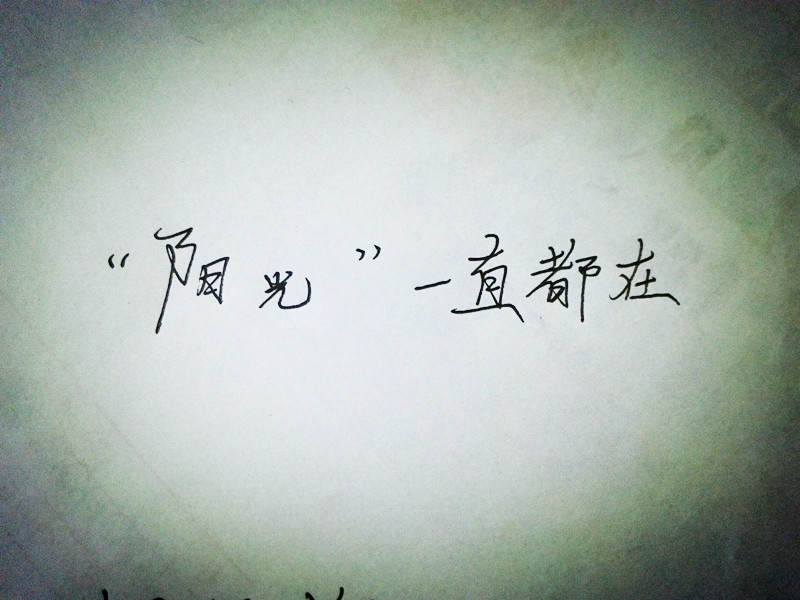 “阳光”一直都在